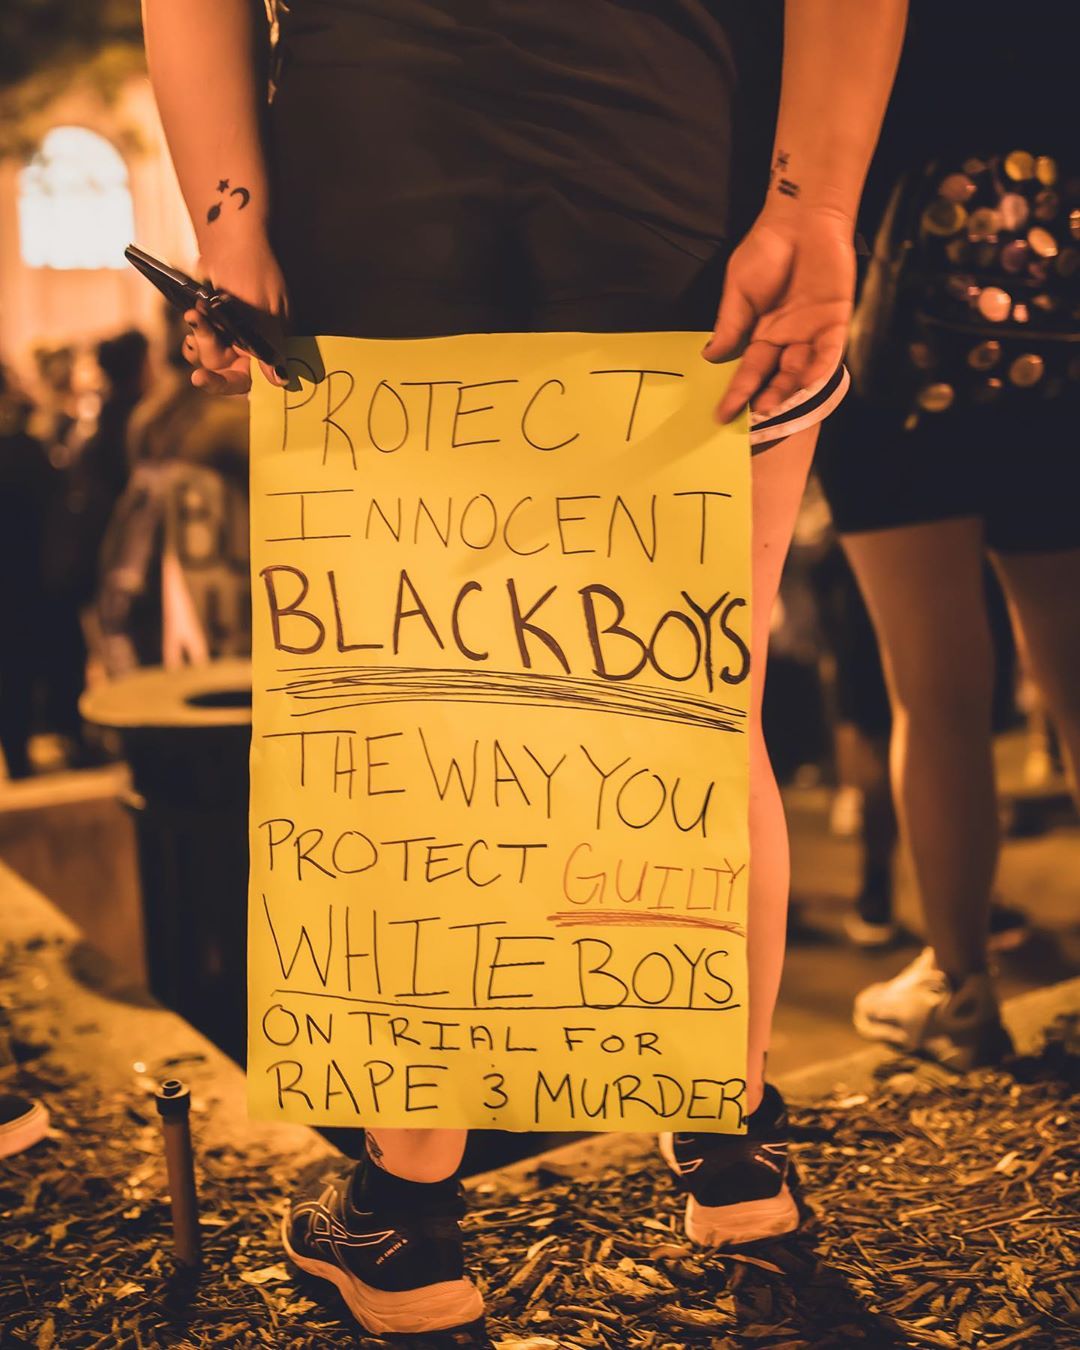 PROTECT
INNOCENT
BLACK BOYS
THE WAY YOU
PROTECT GUILTY
WHITE BOYS
ON TRIAL FOR
RAPE & MURDER.